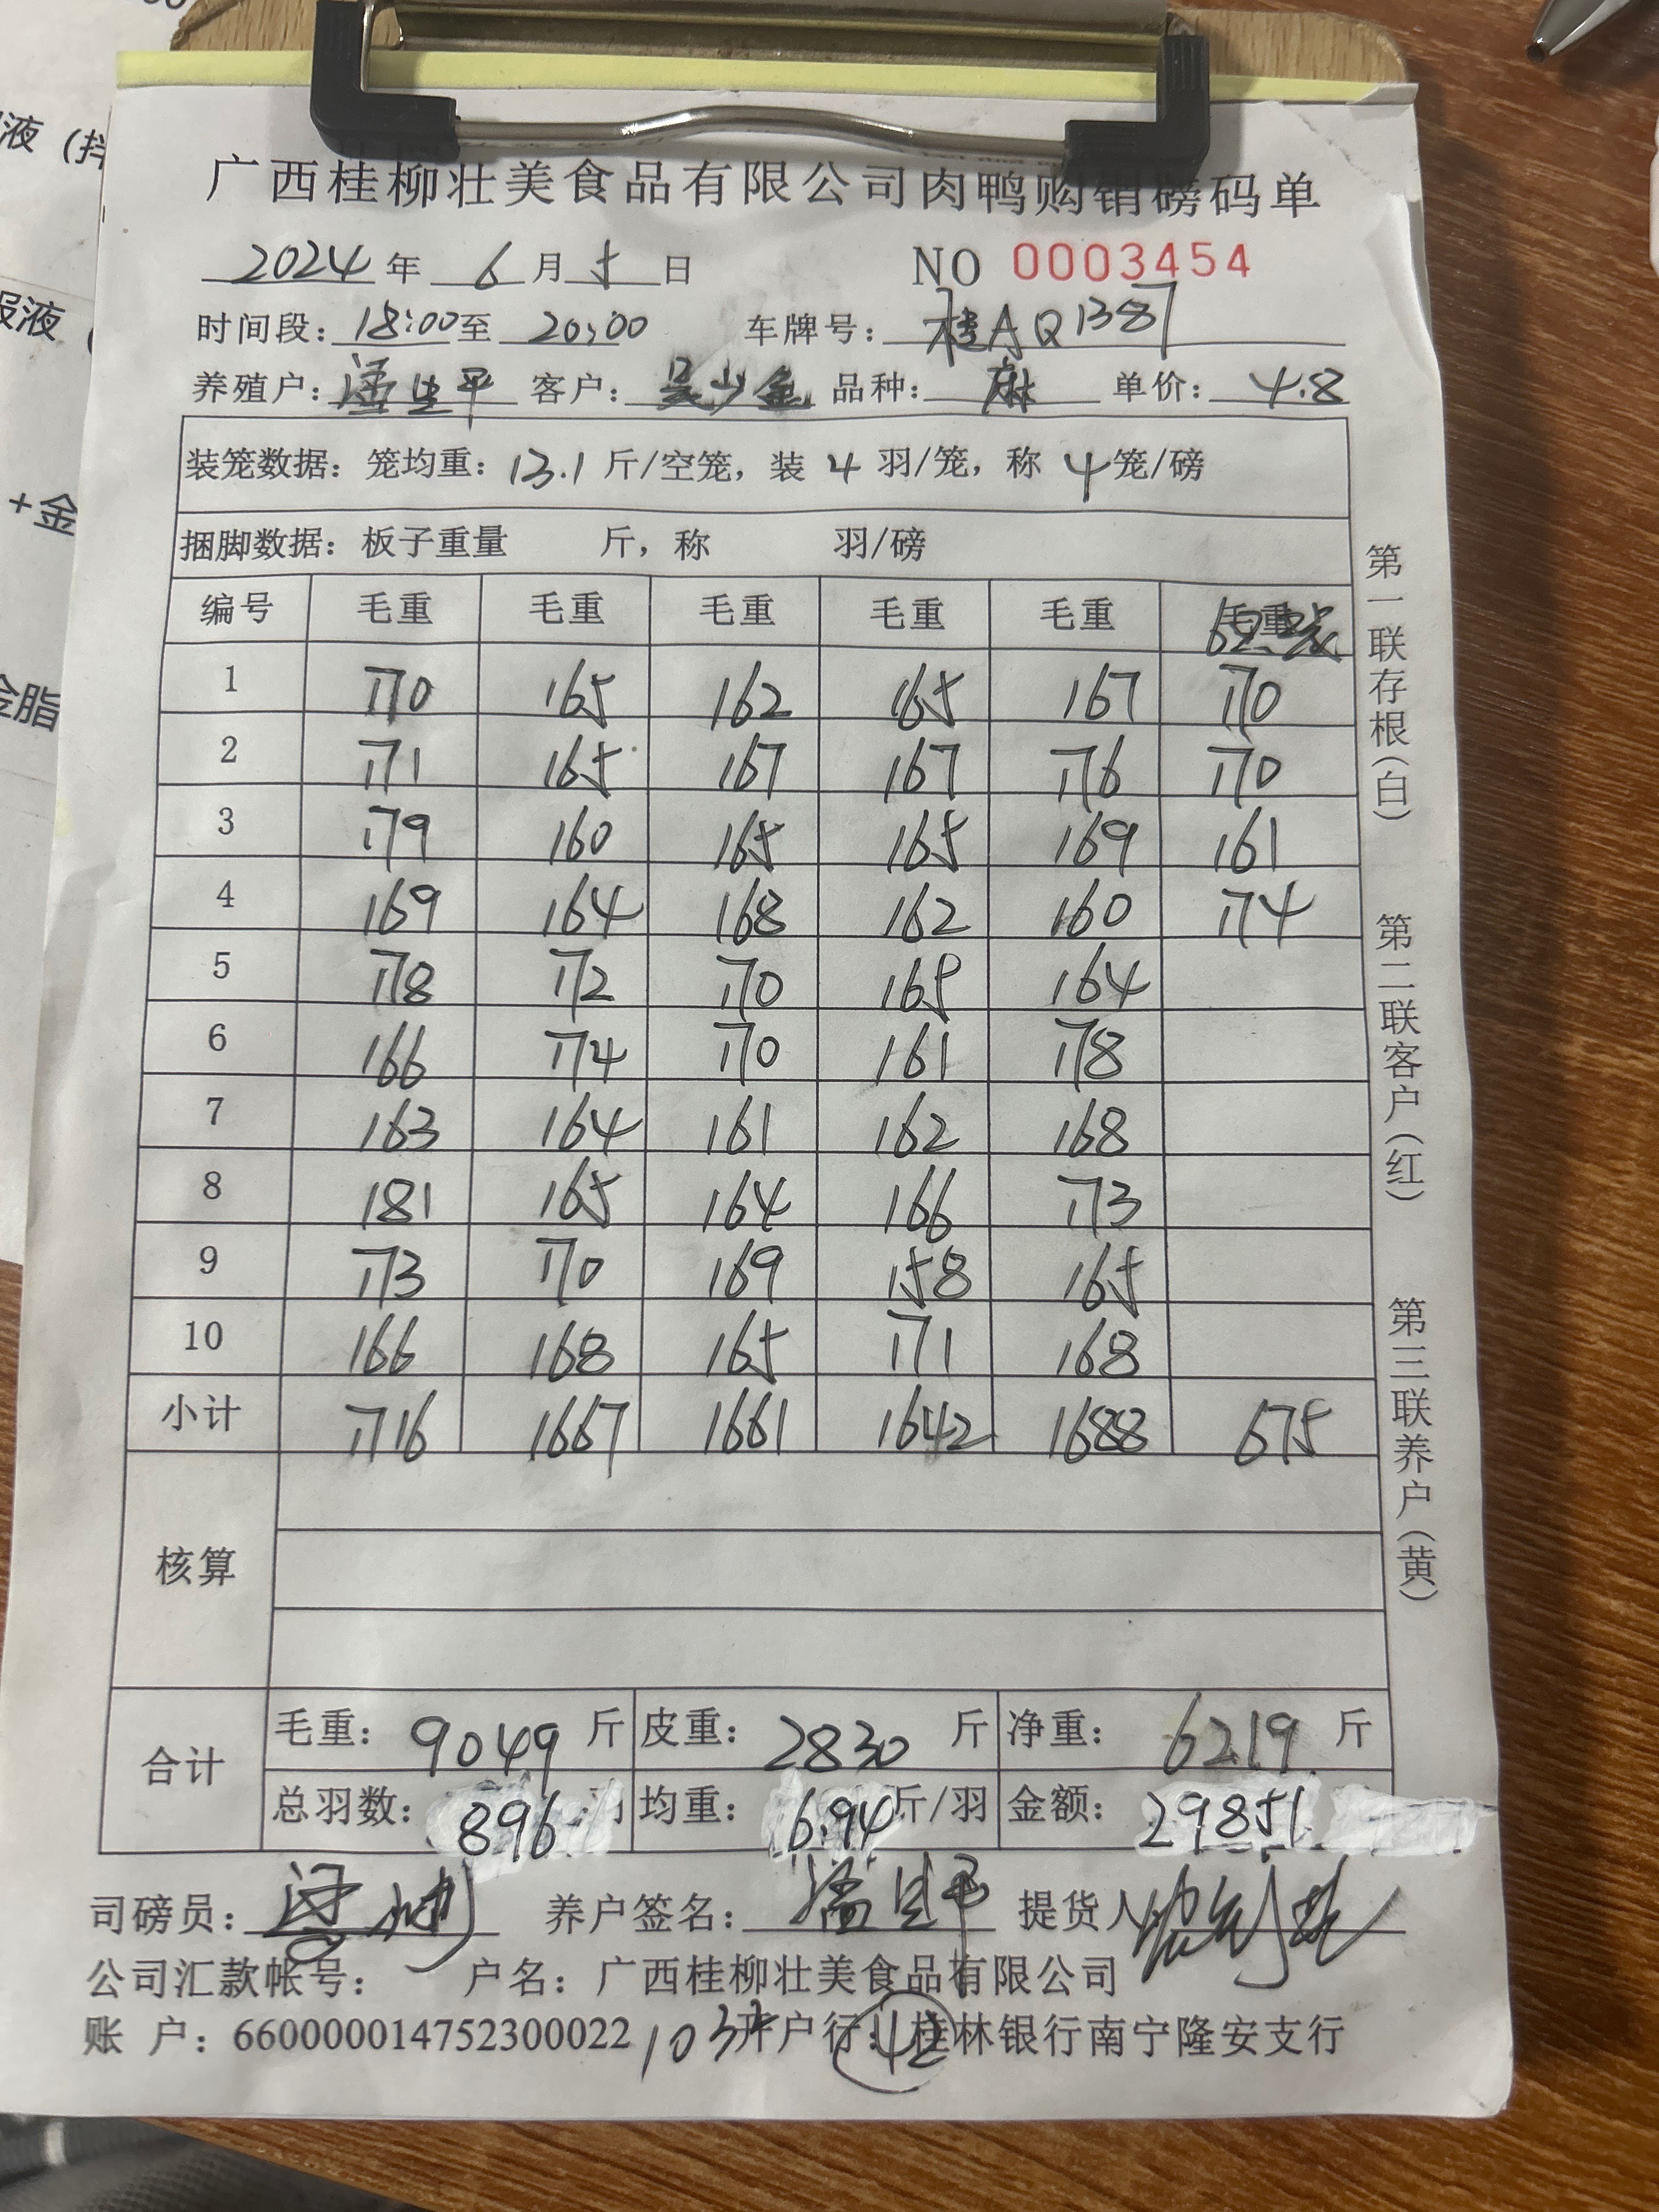 液（拌
服液（
+金
金脂
广西桂柳壮美食品有限公司肉鸭购销磅码单
2024年 6月5日 NO 0003454
时间段：18:00至 20:00 车牌号：桂AQ1387
养殖户：潘生平 客户：吴少金 品种：麻 单价：4.8
装笼数据：笼均重：13.1斤/空笼，装 4 羽/笼，称 4笼/磅
捆脚数据：板子重量 斤，称 羽/磅
编号 毛重 毛重 毛重 毛重 毛重 毛重
1 170 165 162 165 167 170
2 171 165 167 167 176 170
3 179 160 165 165 169 161
4 169 164 168 162 160 174
5 178 172 170 165 164
6 166 174 170 161 178
7 163 164 161 162 168
8 181 165 164 166 173
9 173 170 169 158 165
10 166 168 165 171 168
小计 1716 1667 1661 1642 1688 675
核算
合计 毛重：9049 斤 皮重：2830 斤 净重：6219 斤
总羽数：896 羽 均重：6.94斤/羽 金额：29851
司磅员： 养户签名：潘生平 提货人
公司汇款帐号： 户名：广西桂柳壮美食品有限公司
账 户：660000014752300022 开户行：桂林银行南宁隆安支行
103 42
第一联存根（白） 第二联客户（红） 第三联养户（黄）